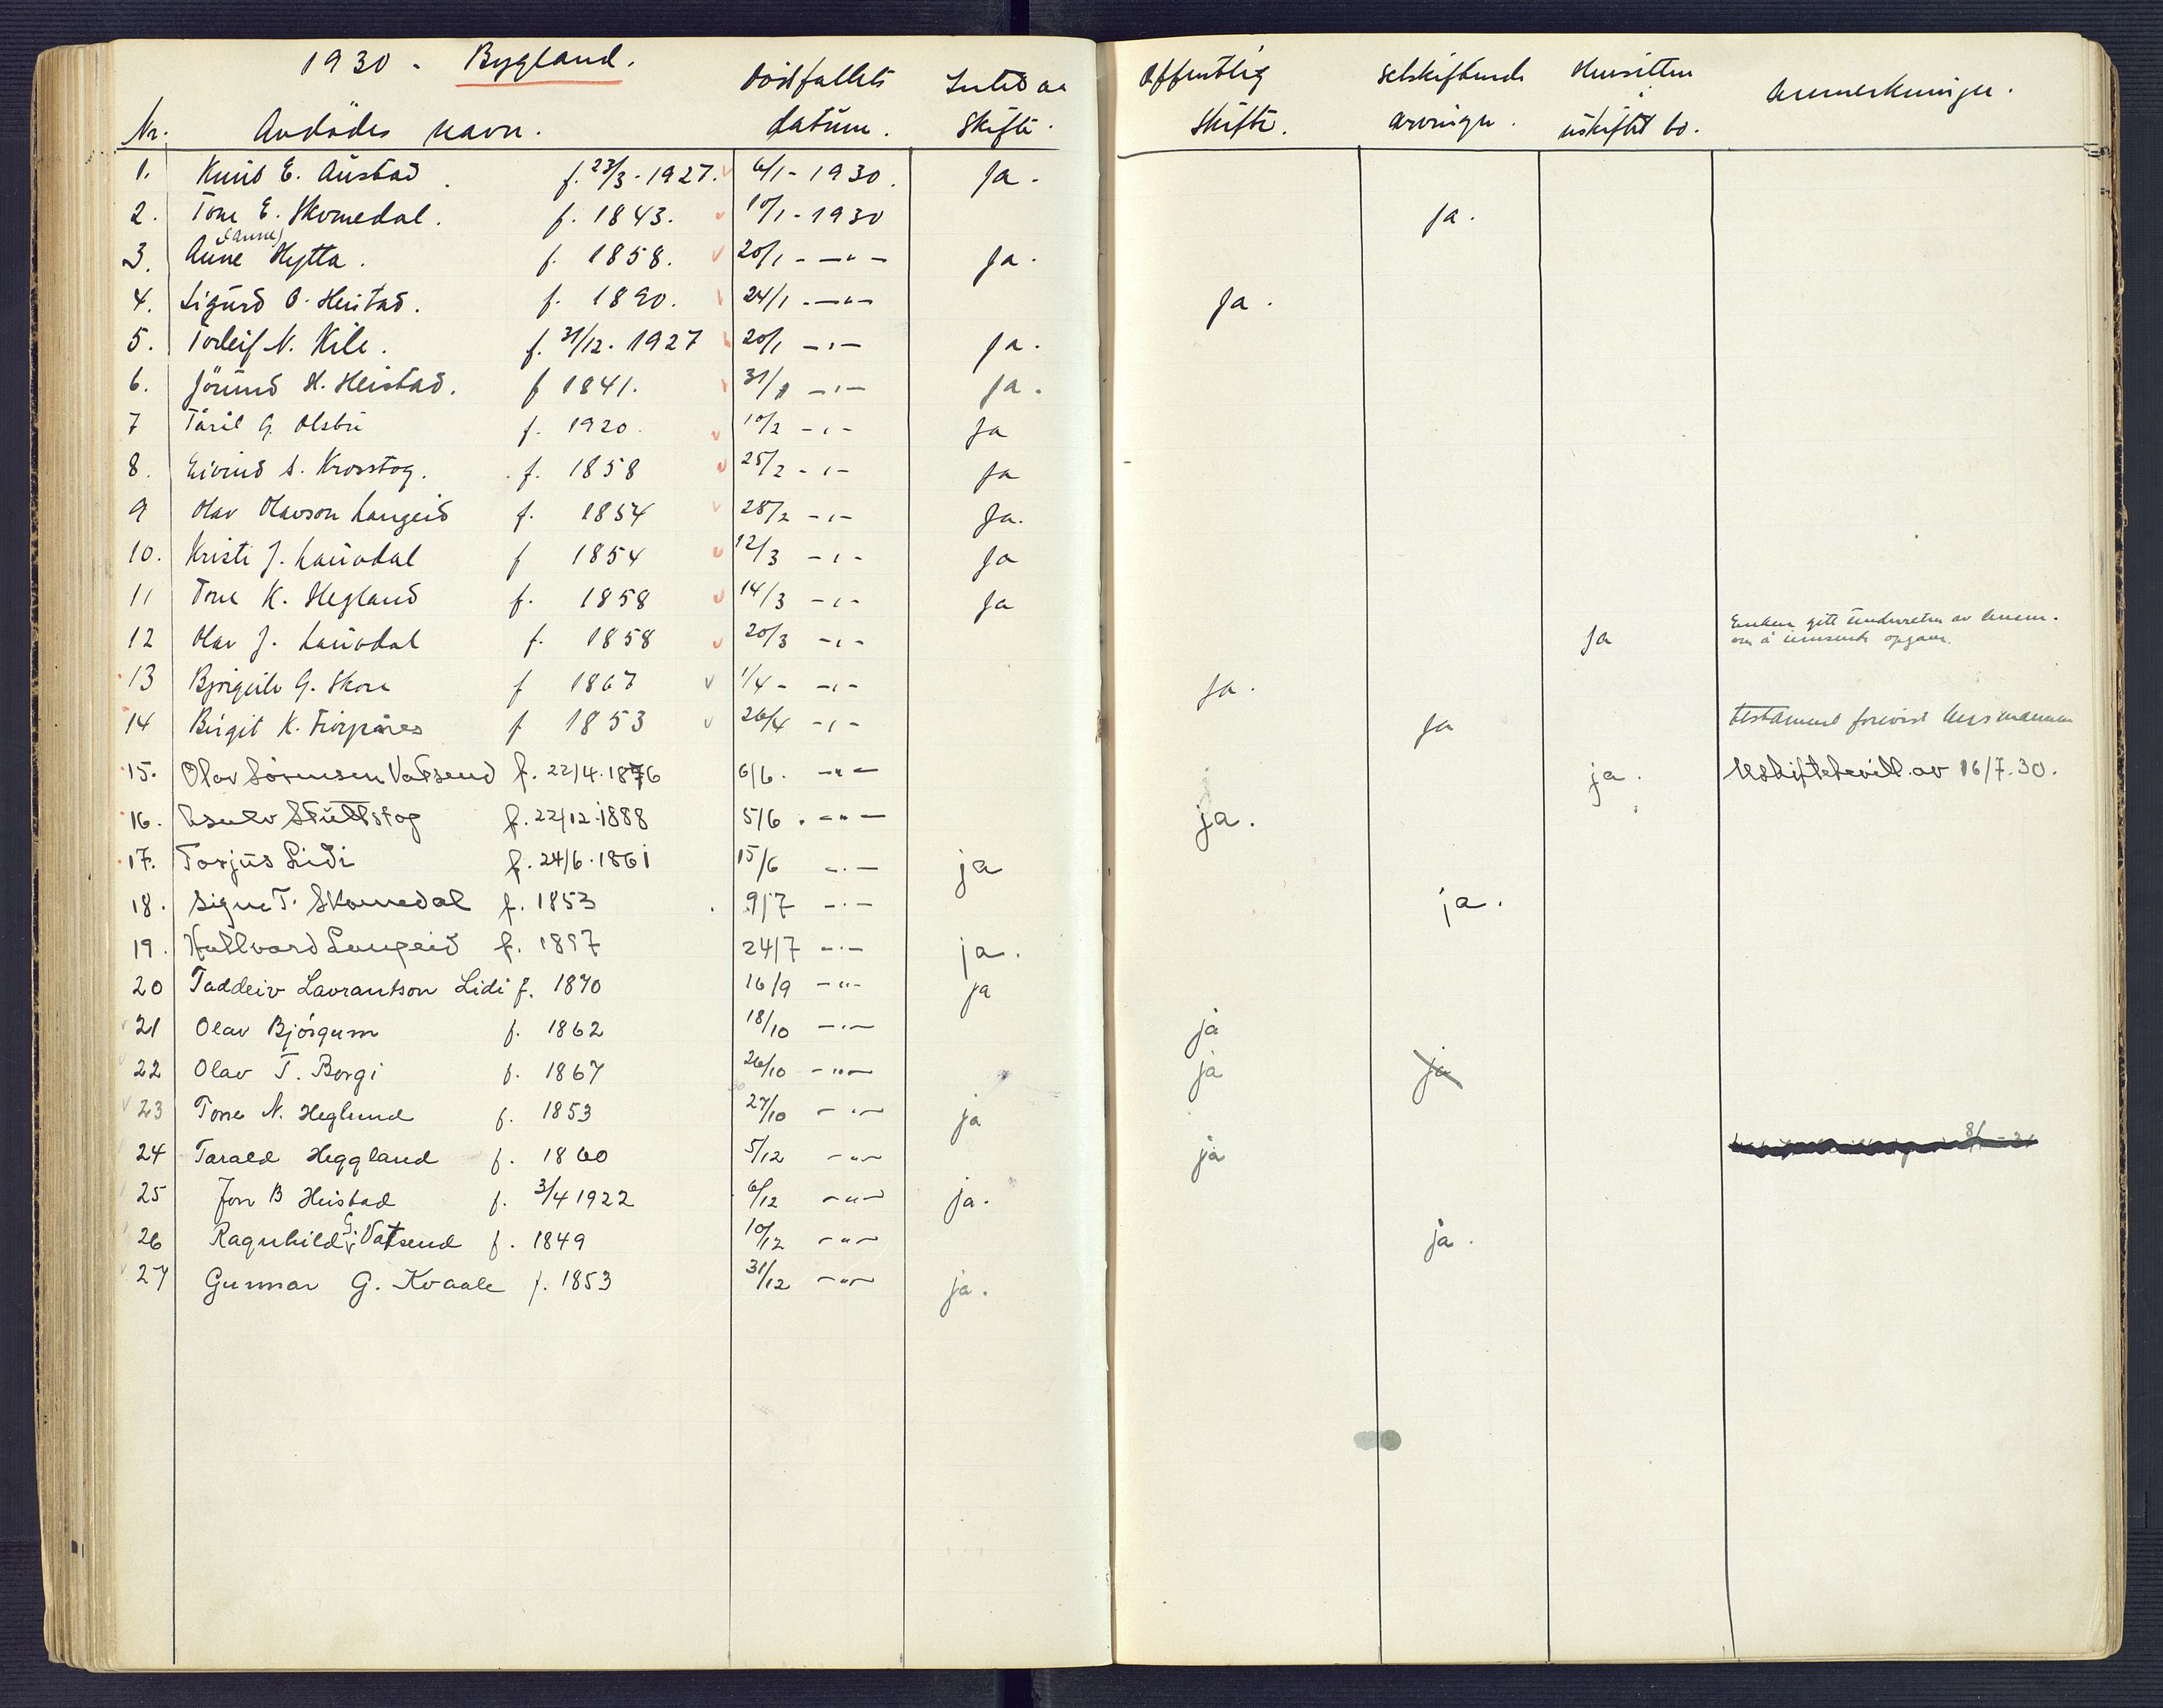 1930 - Bygland.
Nr. Avdødes navn. Dødsfallets datum. Intet av Skifte. Offentlig Skifte. Selskiftende arvinger. Hensitten i uskiftet bo. Anmerkninger.
1. Knut E. Austad. f. 23/3 - 1927. 6/1 - 1930. Ja.
2. Tone E. Skomedal. f. 1843. 10/1 - 1930 Ja.
(Anne)
3. Aane Hytta. f. 1858. 20/1 - — " — Ja.
4. Sigurd O. Heistad. f. 1890. 24/1 - — " — Ja.
5. Torleif N. Kile. f. 31/12 - 1927 20/1 — " — Ja.
6. Jörund H. Heistad. f 1841. 31/1 — " — Ja.
7 Taril G. Olstu f. 1920. 10/2 - " - Ja
8. Eivind S. Krosstog. f. 1858 25/2 - " - Ja
9 Olav Olavson Langeid f. 1854 28/2 - " - Ja.
10. Kristi J. Lauvdal f 1854 12/3 - " - Ja
11 Tone K. Hegland f. 1858 14/3 - " - Ja
12 Olav J. Lauvdal f. 1858 20/3 - " - Ja Enken gitt underretn av lensm.
om å innsende opgave.
13 Bjørgulv G. Skore f 1867 1/4 - - " - Ja.
14 Birgit K. f 1853 26/4 - " - Ja testament forevist lensmannen
15. Olav Sørensen Vatsend f. 22/4.1876 6/6. — " — ja. Uskiftebevill. av 16/7.30.
16. Asulv Stultstog f. 22/12.1888 5/6. — " — ja.
17. Torjus Lidi f. 24/6.1861 15/6 — " — ja
18. Signe T. Skomedal f. 1853 9/7 — " — ja.
19. Hallvard Langeid f. 1897 24/7 — " — ja.
20 Taddeiv Lavrantson Lidi f. 1870 16/9 — " — ja
21 Olav Bjórgum f. 1862 18/10 — " — ja
22 Olav T. Borgi f. 1867 26/10 — " — ja ja
23 Tone N. Heglund f. 1853 27/10 — " — ja
24 Tarald Heggland f. 1860 5/12 — " — ja
25 Jon B Heistad f. 3/4 1922 6/12 — " — ja.
26 Ragnhild G. Vatsend f. 1849 10/12 — " — ja.
27 Gunnar G. Kvaale f. 1853 31/12 — " — ja.